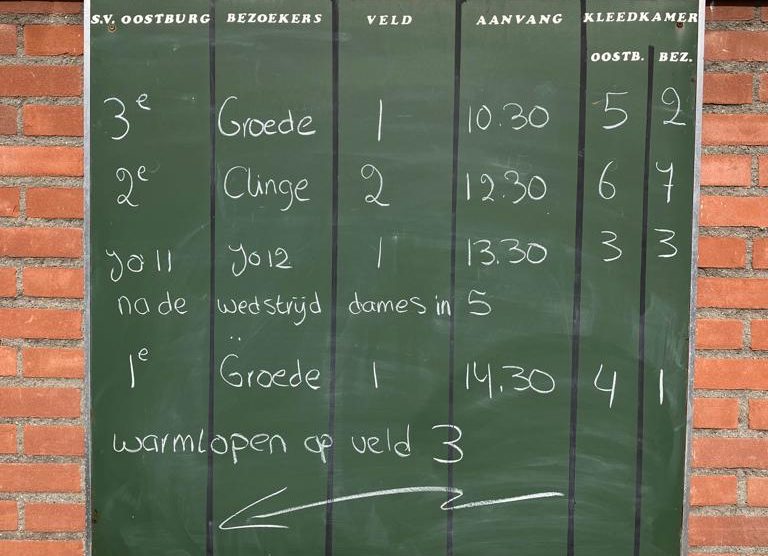 S.V. OOSTBURG BEZOEKERS VELD AANVANG KLEEDKAMER
OOSTB. BEZ.
3e Groede 1 10.30 5 2
2e Clinge 2 12.30 6 7
JO11 JO12 1 13.30 3 3
na de wedstrijd dames in 5
1e Groede 1 14.30 4 1
warmlopen op veld 3